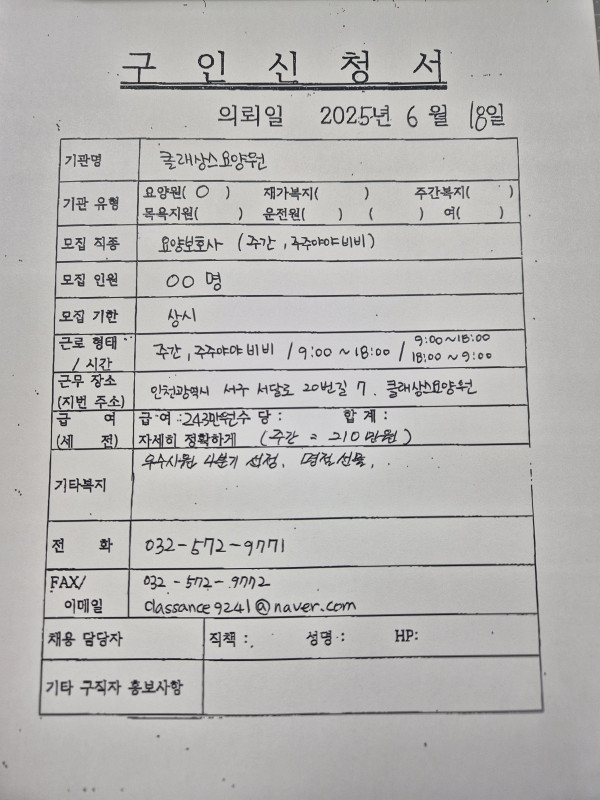 구 인 신 청 서
의뢰일 2025년 6 월 18일
기관명 클래상스요양원
기관 유형 요양원( O ) 재가복지( ) 주간복지( )
목욕지원( ) 운전원( ) ( ) 여( )
모집 직종 요양보호사 (주간, 주주야야비비)
모집 인원 00 명
모집 기한 상시
근로 형태 / 시간 주간, 주주야야비비 / 9:00 ~ 18:00 / 9:00~18:00
18:00 ~ 9:00
근무 장소
(지번 주소) 인천광역시 서구 서달로 20번길 7. 클래상스요양원
급 여 급 여 : 243만원 수 당 : 합 계 :
(세 전) 자세히 정확하게 (주간 = 210만원)
기타복지 우수사원 4분기 선정, 명절선물,
전 화 032-572-9771
FAX/ 032 - 572 - 9772
이메일 classance9241@naver.com
채용 담당자 직책 : 성명 : HP:
기타 구직자 홍보사항